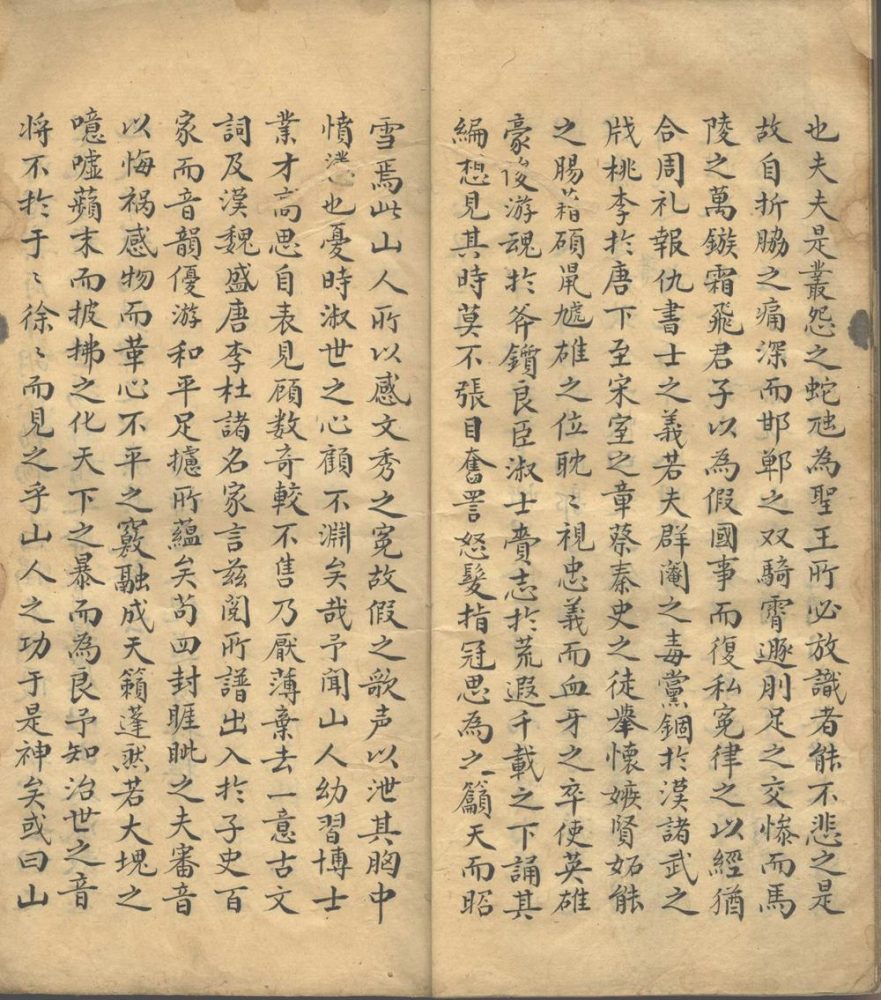 也夫夫是叢怨之蛇虺為聖王所必放識者能不悲之是
故自折脇之痛深而邯鄲之双騎霄遯刖足之交慘而馬
陵之萬鏃霜飛君子以為假國事而復私冤律之以經猶
合周礼報仇書士之義若夫群阉之毒黨錮於漢諸武之
戕桃李於唐下至宋室之章蔡秦史之徒擧懷嫉賢妬能
之腸藉碩鼠虓雄之位眈〻視忠義而血牙之卒使英雄
豪俊游魂於斧鑕良臣淑士賫志於荒遐千載之下誦其
編想見其時莫不張目奮詈怒髮指冠思為之籲天而昭
雪焉此山人所以感文秀之冤故假之歌声以泄其胸中
憤懣也憂時淑世之心顧不淵矣哉予聞山人幼習博士
業才高思自表見顧数奇較不售乃厭薄棄去一意古文
詞及漢魏盛唐李杜諸名家言兹閱所譜出入於子史百
家而音韻優游和平足攄所蘊矣苟四封睚眦之夫審音
以悔禍感物而革心不平之竅融成天籟蓬然若大塊之
噫嘘蘋末而披拂之化天下之暴而為良予知治世之音
将不於于〻徐〻而見之乎山人之功于是神矣或曰山